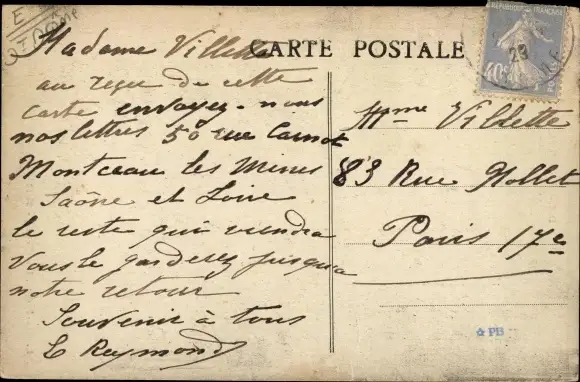 E
CARTE POSTALE
Madame Villette
au reçu de cette
carte envoyez-nous
nos lettres 50 rue Carnot
Montceau les Mines
Saône et Loire
le reste qui viendra
vous le garderez jusqu'a
notre retour
Souvenir à tous
L Raymond
REPUBLIQUE FRANÇAISE
40c
29
Mme Villette
83 Rue Nollet
Paris 17e
PB